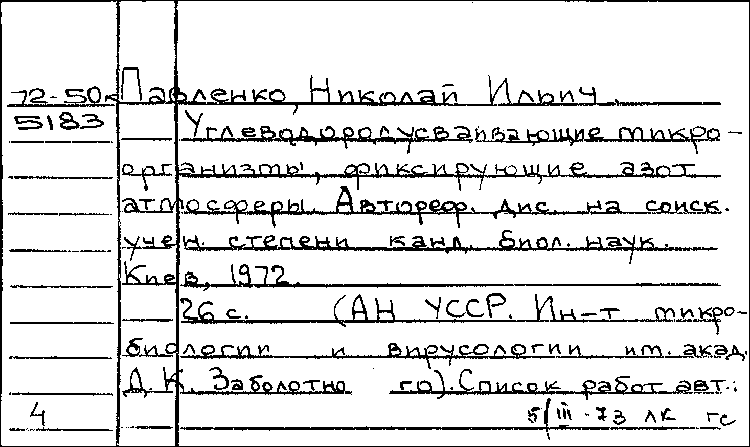 72-50к Павленко, Николай Ильич.
5183 Углеводородусваивающие микро-
организмы, фиксирующие азот
атмосферы. Автореф. дис. на соиск.
учен. степени канд. биол. наук.
Киев, 1972.
26 с. (АН УССР. Ин-т микро-
биологии и вирусологии им. акад.
Д.К. Заболотно го). Список работ авт.:
4 5/III-73 ЛК гс